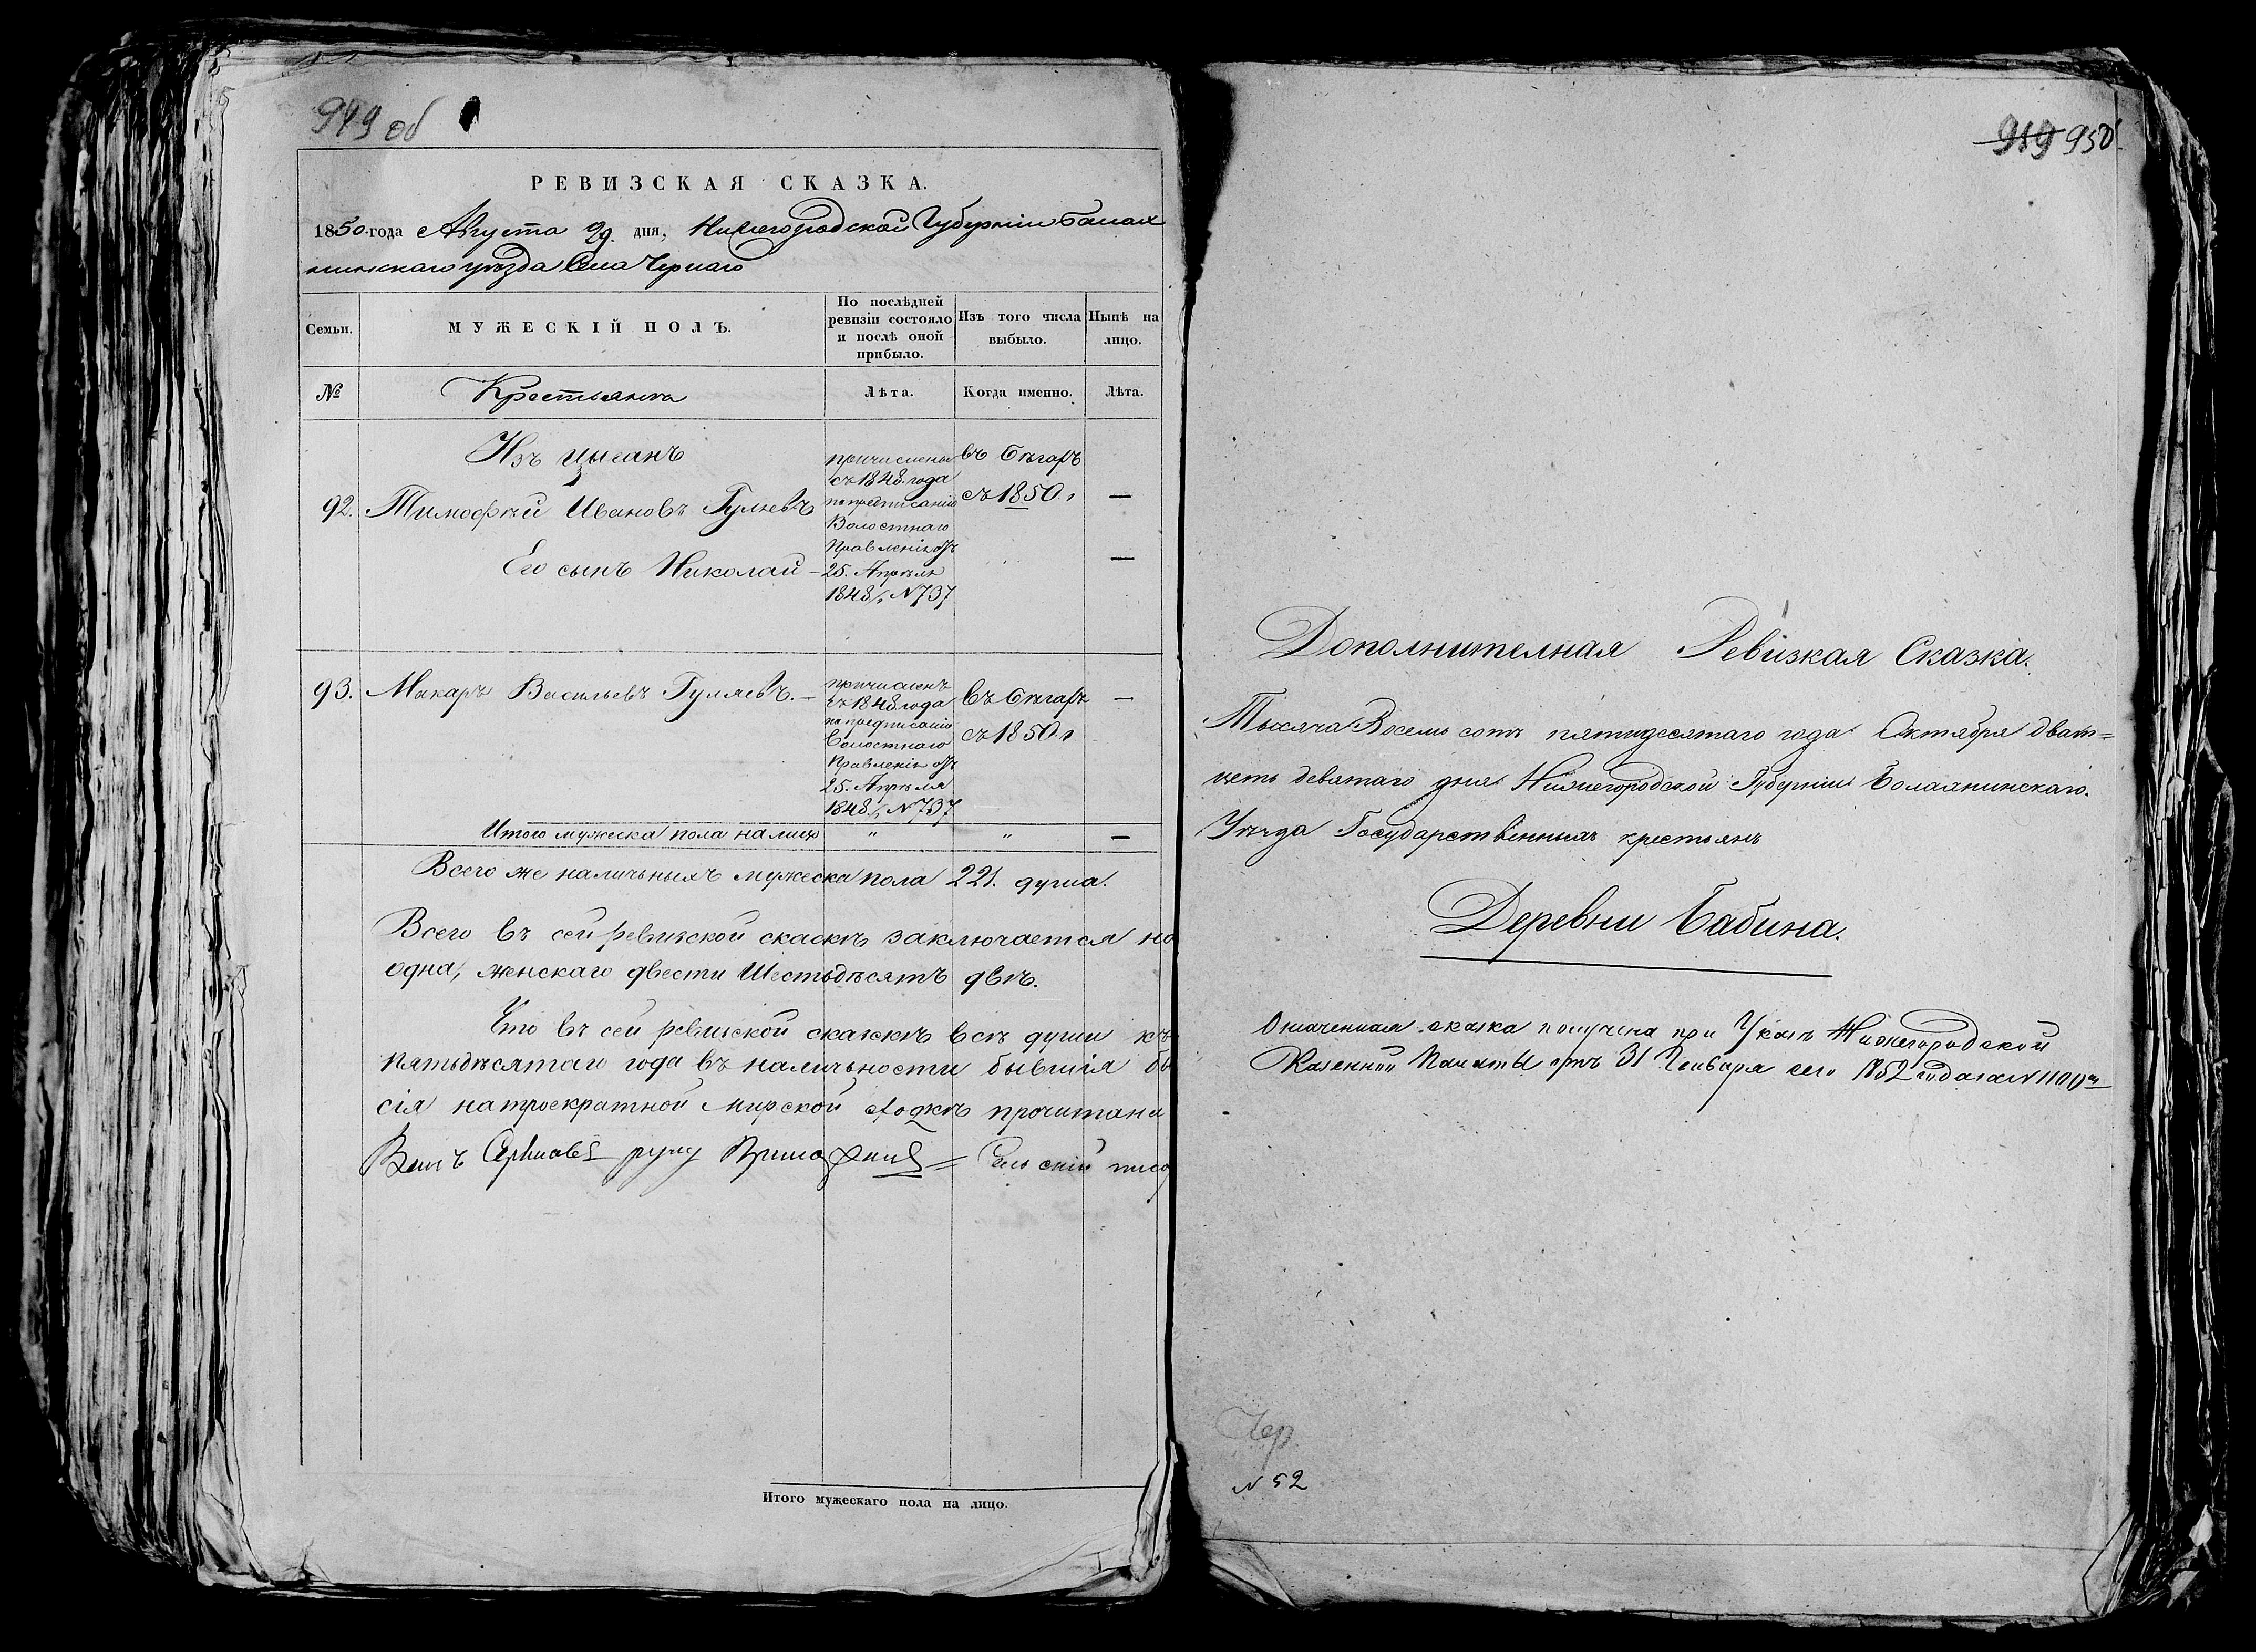 949 об
РЕВИЗСКАЯ СКАЗКА.
1850 года Августа 29. дня, Нижегородской Губерніи Балах
нинскаго уѣзда Села Чернаго
Семьи.
МУЖЕСКІЙ ПОЛЪ.
По послѣдней
ревизіи состояло
и послѣ оной
прибыло.
Изъ того числа
выбыло.
Нынѣ на
лицо.
№
Крестьяне
Лѣта.
Когда именно.
Лѣта.
Изъ цыганъ
92. Тимофѣй Ивановъ Гуляевъ
Его сынъ Николай —
причислены
съ 1848. года
по предписанію
Волостнаго
Правленія отъ
25. Апрѣля
1848/г. N 737
въ бѣгахъ
съ 1850. г
—
—
93. Макаръ Васильевъ Гуляевъ. —
причисленъ
съ 1848 года
по предписанію
Волостнаго
Правленія отъ
25. Апрѣля
1848/г. N 737
въ бѣгахъ
съ 1850 г
—
Итого мужеска пола налицо " " —
Всего же наличныхъ мужеска пола 221. душа.
Всего въ сей ревизской сказкѣ заключается на
одна, женскаго двести Шестьдѣсятъ двѣ.
Что въ сей ревизской сказкѣ всѣ души къ
пятьдѣсятаго года въ наличьности бывшія бы
сія на троекратной мирской сходкѣ прочитана
руку Сельскій писа
Итого мужескаго пола на лицо.
919 950
Дополнителная Ревизкая Сказка.
Тысяча Восемь сотъ пятидесятаго года Октября дват=
цеть девятаго дня Нижегородской Губерніи Болахнинскаго.
Уѣзда Государственныхъ крестьянъ
Деревни Бабина.
Означенная сказка получена при Указѣ Нижегородской
Казенной Палаты отъ 31 Генваря сего 1852 года за N 1100мъ
Чер.
N 52